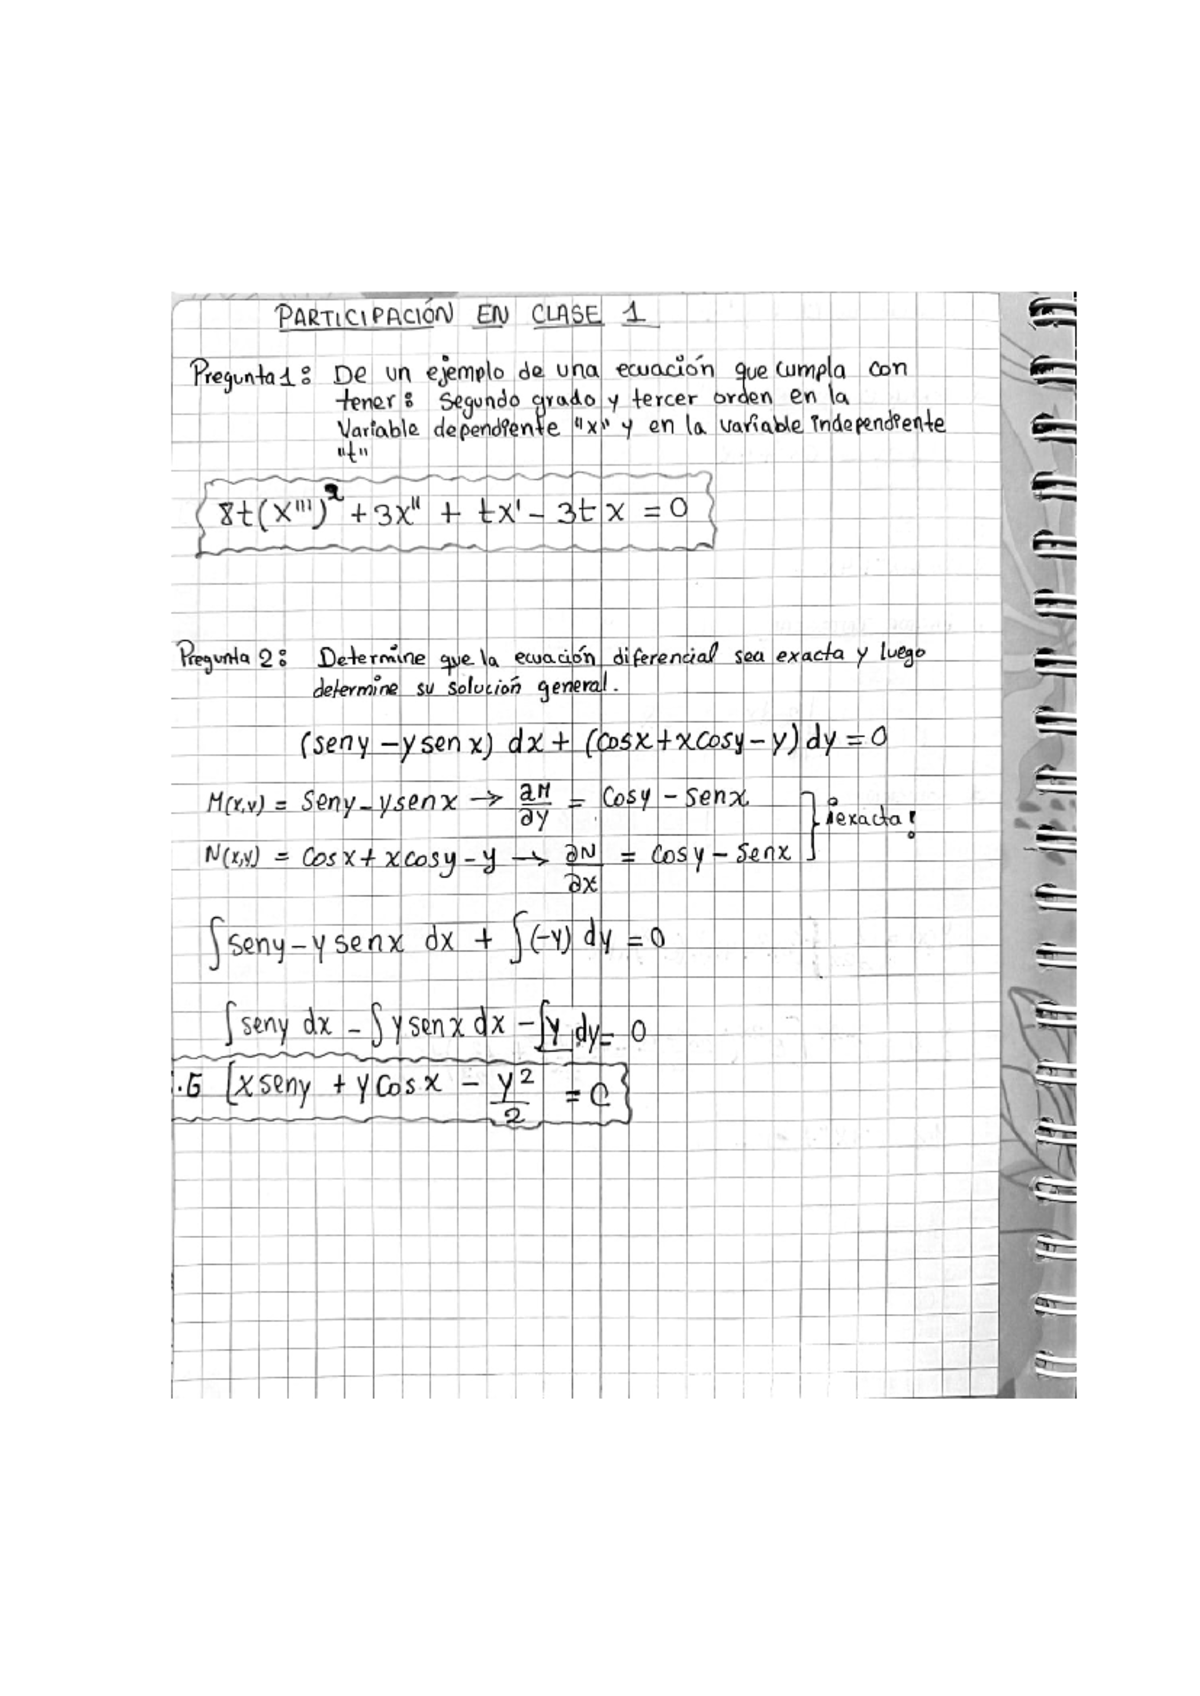 PARTICIPACIÓN EN CLASE 1
Pregunta 1: De un ejemplo de una ecuación que cumpla con
tener: Segundo grado y tercer orden en la
Variable dependiente "x" y en la variable independiente
"t"
8t(x''')² + 3x'' + tx' - 3t x = 0
Pregunta 2: Determine que la ecuación diferencial sea exacta y luego
determine su solución general.
(seny - y sen x) dx + (cosx + xcosy - y) dy = 0
M(x,y) = seny - ysenx → ∂M/∂y = cosy - senx
¡exacta!
N(x,y) = cosx + xcosy - y → ∂N/∂x = cosy - senx
∫ seny - y senx dx + ∫(-y) dy = 0
∫ seny dx - ∫ y senx dx - ∫y dy = 0
.G [xseny + ycosx - y²/2 = C